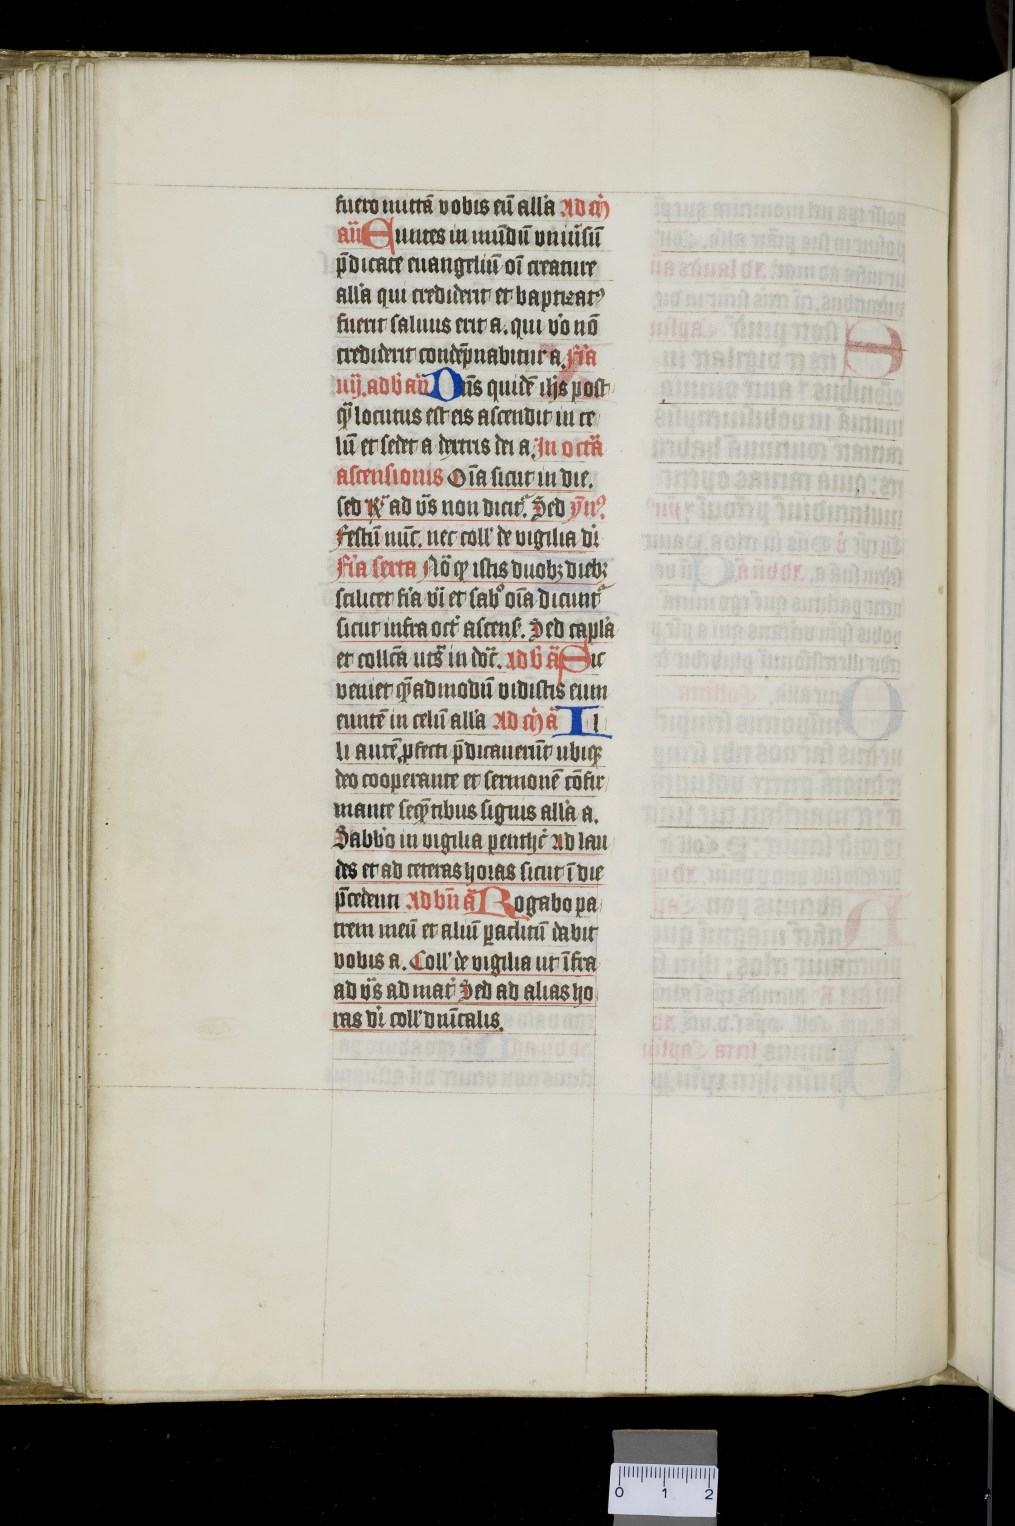 fuero mittā vobis eū all'a Ad m̄
añ Euntes in mūdū vniūsū
p̄dicate euangeliū oī creature
all'a qui crediderit et baptizatꝰ
fuerit saluus erit a. qui v̊o nō
crediderit condēpnabitur a. Fr̄a
iiij. ad b̄ añ Dn̄s quidē ih̄s post
qᷓ locutus est eis ascendit in ce
lū et sedet a dextris dei a. In octā
ascensionis Oīa sicut in die.
sed Rꝝ ad vs̄ non dicit᷑. Sed ym̄ꝰ.
Festū nūc. nec coll' de vigilia dr̄
Fr̄a sexta Nō qꝫ istis duobꝫ diebꝫ
scilicet fr̄a vi et sab̊o oīa dicunt᷑
sicut infra oct̄ ascens̄. Sed capl'a
et collc̄a vts̄ in do꞊c̄. Ad b̄ ā Sic
veniet qᷓadmodū vidistis eum
euntē in celū all'a Ad m̄ ā Il
li autē ꝓfecti p̄dicauerūt ubiqꝫ
deo cooperante et sermonē cōfir
mante seqūtibus signis all'a a.
Sabb̊o in vigilia penthc̄ Ad lau
des et ad ceteras horas sicut ī die
p̄cedenti Ad bn̄ ā Rogabo pa
trem meū et aliū ꝑaclitū dabit
vobis a. Coll' de vigilia ut īfra
ad vs̄ ad mat̄ Sed ad alias ho
ras dr̄ coll' dn̄icalis.